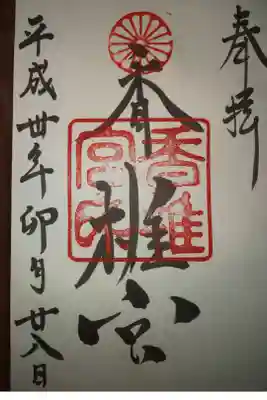 奉拝
香椎宮
香椎
宮印
平成廿年卯月廿八日